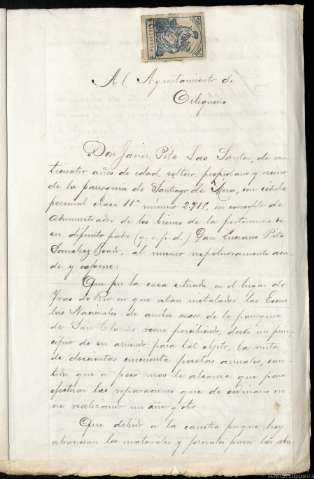 Al Ayuntamiento de
Don Javier Pita Das Santas, de
años de edad, soltero, propietario y vecino
de la parroquia de Santiago de Mera, con cédula
personal clase 11ª número 2711, en concepto de
administrador de los bienes de la pertenencia de
su difunto padre (q. e. p. d.) Don Luciano Pita
González Prado, al mismo respetuosamente acu-
de y expone:
Que por la casa situada en el lugar de
en que estan instaladas las Escue-
las Nacionales de ambos sexos de la parroquia
de San Claudio, viene percibiendo, desde un prin-
cipio de su arriendo para tal objeto, la renta
de doscientas cincuenta pesetas anuales, can-
tidad que a poco mas de alcanza que para
efectuar las reparaciones que de
se realizaron un año y otro
Que debido a la carestía porque hoy
atraviesan los materiales y jornales para las